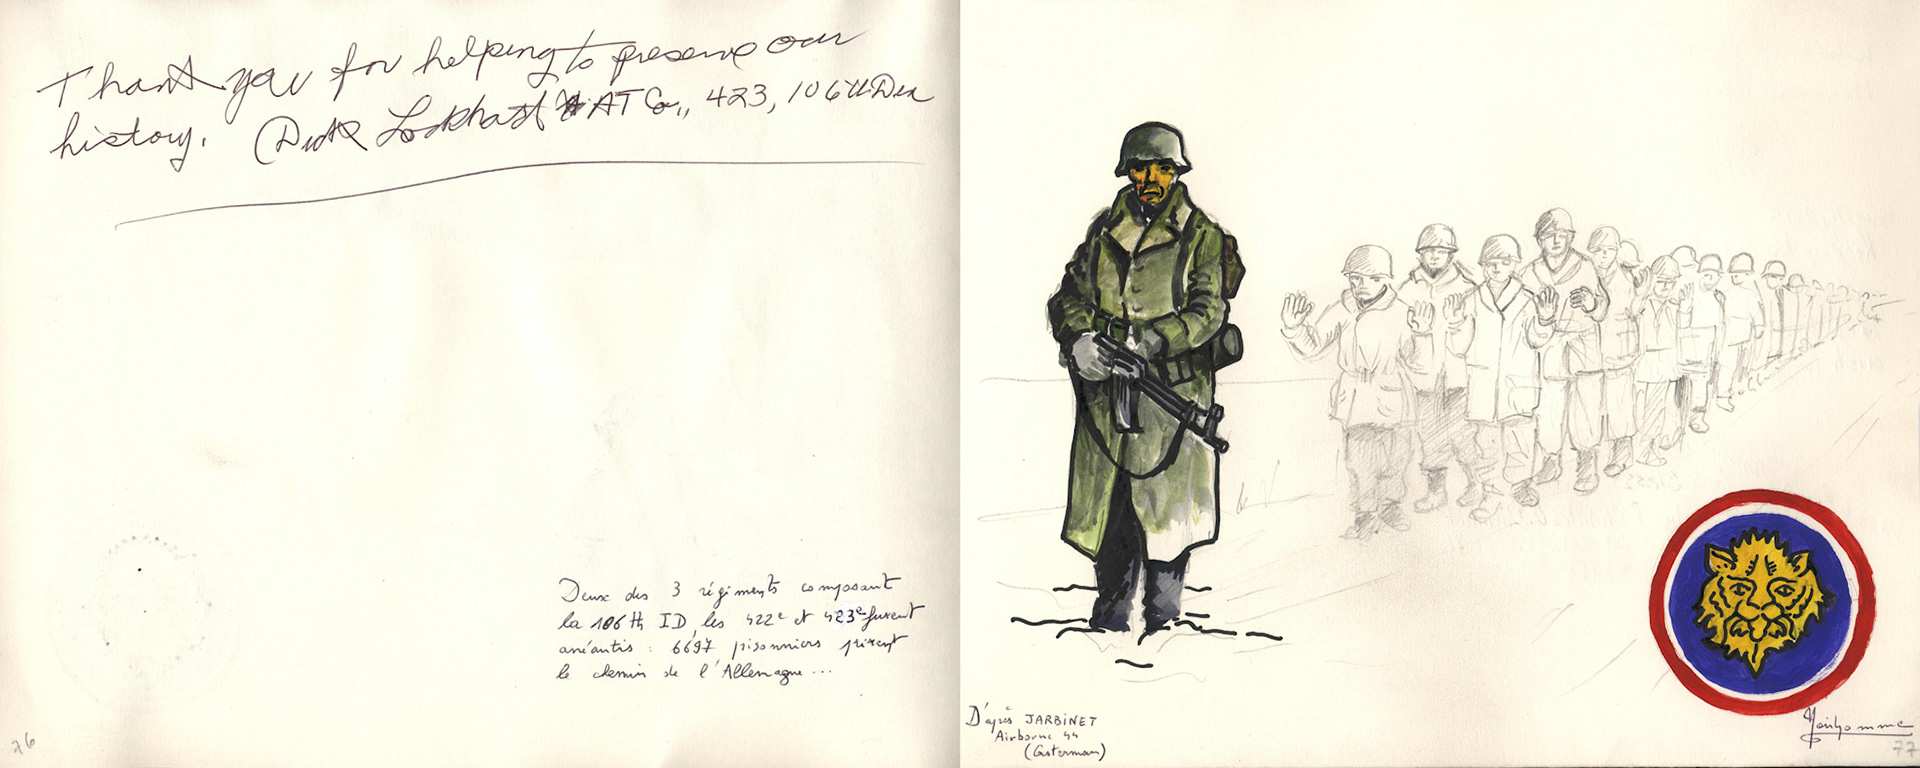 Thank you for helping to preserve our
history. Dick Lockhart AT Co., 423, 106th Div
Deux des 3 régiments composant
la 106th ID, les 422e et 423e furent
anéantis : 6697 prisonniers prirent
le chemin de l'Allemagne...
26
D'après JARBINET
Airborne 44
(Casterman)
77